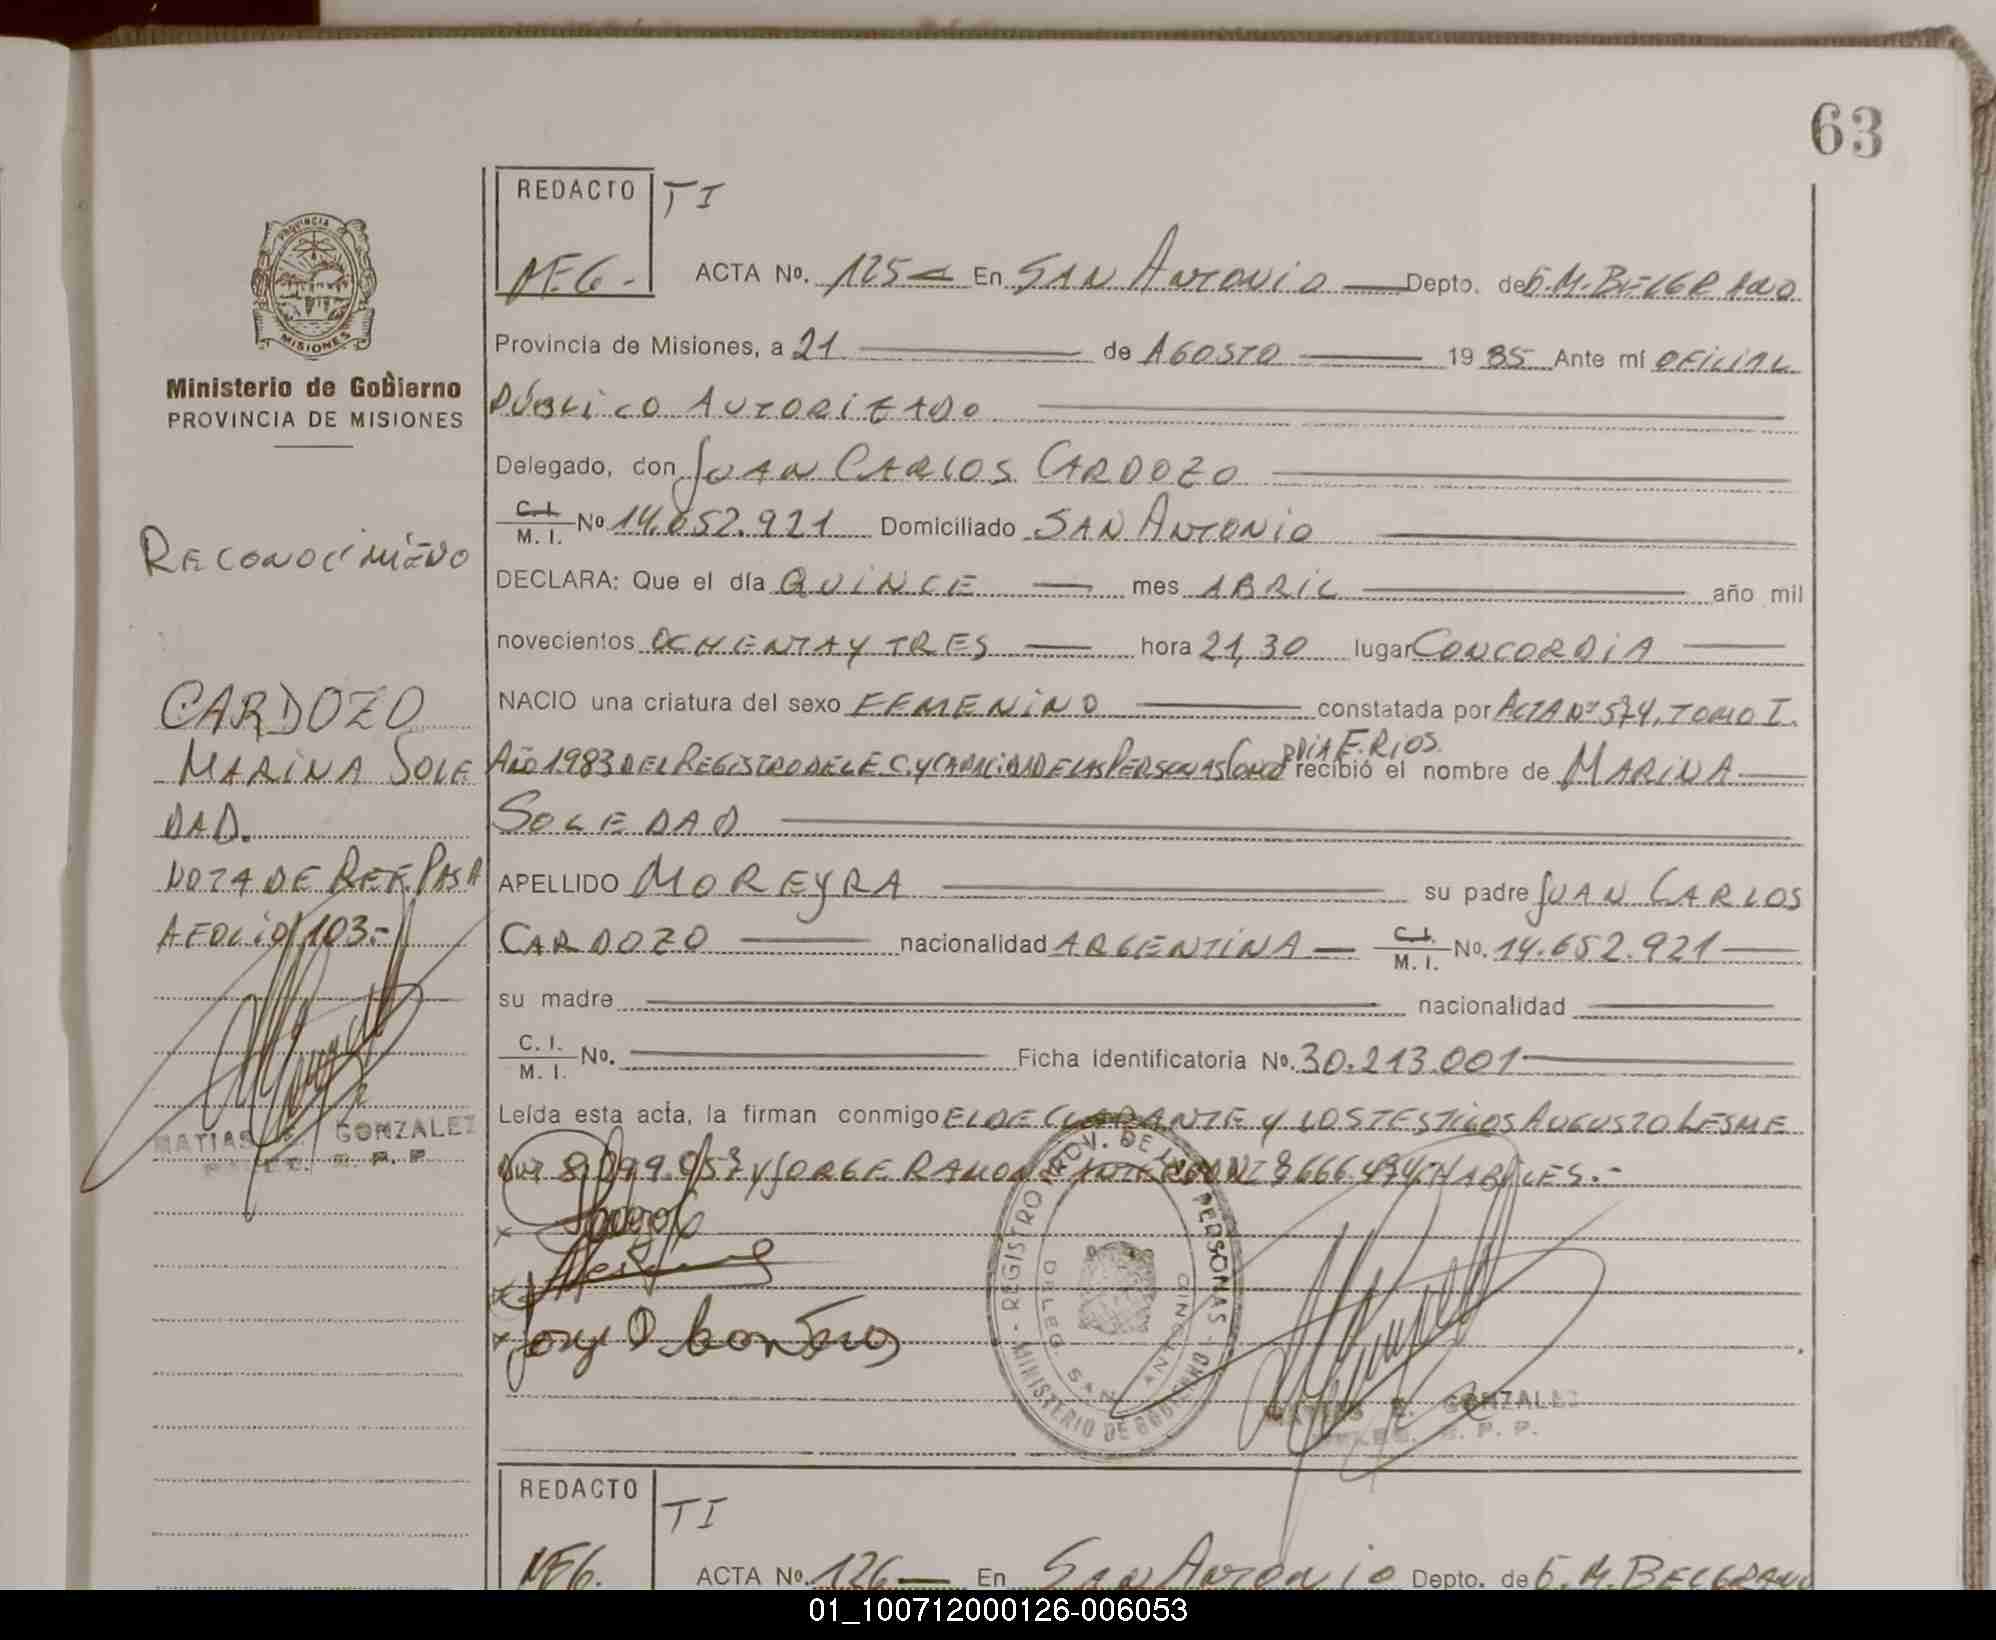 63
REDACTO TI
M.E.G.-
PROVINCIA DE
MISIONES
Ministerio de Gobierno
PROVINCIA DE MISIONES
ACTA Nº. 125 En SAN ANTONIO Depto. de G.M.BELGRANO
Provincia de Misiones, a 21 de AGOSTO 1985 Ante mí OFICIAL
PÚBLICO AUTORIZADO
Delegado, don JUAN CARLOS CARDOZO
C.I. / M.I. Nº 14.652.921 Domiciliado SAN ANTONIO
RECONOCIMIENO
DECLARA: Que el día QUINCE mes ABRIL año mil
novecientos OCHENTA Y TRES hora 21,30 lugar CONCORDIA
NACIO una criatura del sexo FEMENINO constatada por ACTA Nº 574, TOMO I.
AÑO 1983 DEL REGISTRO DEL E.C. Y CAPACIDAD DE LAS PERSONAS CONCORDIA E. RIOS. recibió el nombre de MARINA
SOLEDAD
APELLIDO MOREYRA su padre JUAN CARLOS
CARDOZO nacionalidad ARGENTINA C.I. / M.I. No. 14.652.921
su madre nacionalidad
C.I. / M.I. No. Ficha identificatoria No. 30.213.001
Leída esta acta, la firman conmigo EL DECLARANTE Y LOS TESTIGOS AUGUSTO LESME
DNI 8.099.057 Y JORGE RAMON 8.666.494, HABILES.-
CARDOZO
MARINA SOLE
DAD.
NOTA DE REF. PASA
A FOLIO 103.-
MATIAS E. GONZALEZ
REGISTRO PROV. DE LAS PERSONAS - MINISTERIO DE GOBIERNO
SAN ANTONIO
MATIAS E. GONZALEZ
REDACTO TI
M.E.G.
ACTA Nº. 126 En SAN ANTONIO Depto. de G.M.BELGRANO
01_100712000126-006053